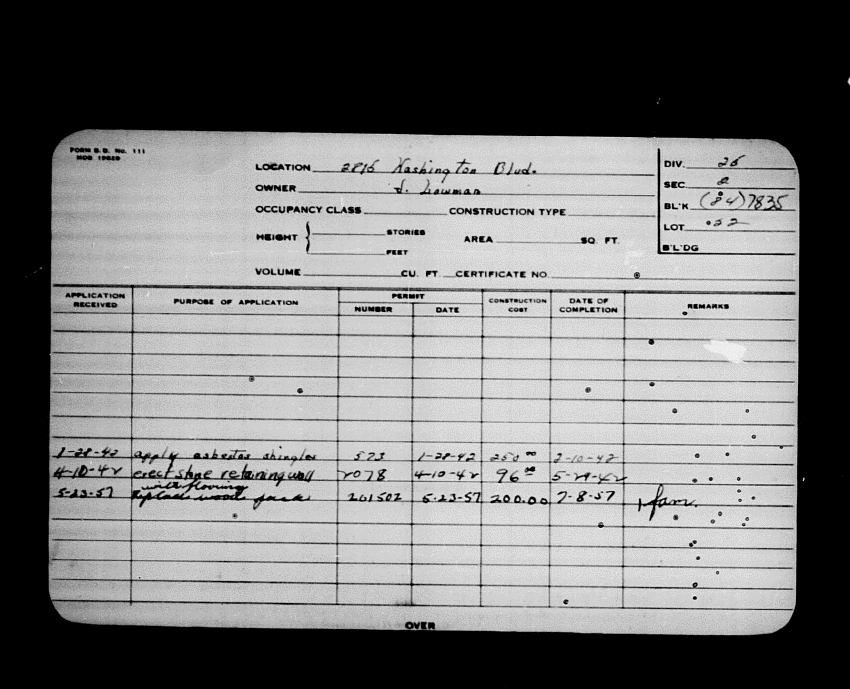 FORM B.B. No. 111
MOB 19629
LOCATION 2816 Washington Blvd.
OWNER J. Lowman
OCCUPANCY CLASS CONSTRUCTION TYPE
HEIGHT { STORIES AREA SQ. FT.
FEET
VOLUME CU. FT. CERTIFICATE NO.
DIV. 26
SEC. 2
BL'K (84) 7835
LOT 52
B'L'DG
APPLICATION RECEIVED PURPOSE OF APPLICATION PERMIT NUMBER DATE CONSTRUCTION COST DATE OF COMPLETION REMARKS
1-28-42 apply asbestos shingles 573 1-28-42 250 00 2-10-42
4-10-42 erect stone retaining wall 2078 4-10-42 96 00 5-29-42
with flooring
5-23-57 replace wood 201502 5-23-57 200.00 7-8-57 1 fam.
OVER